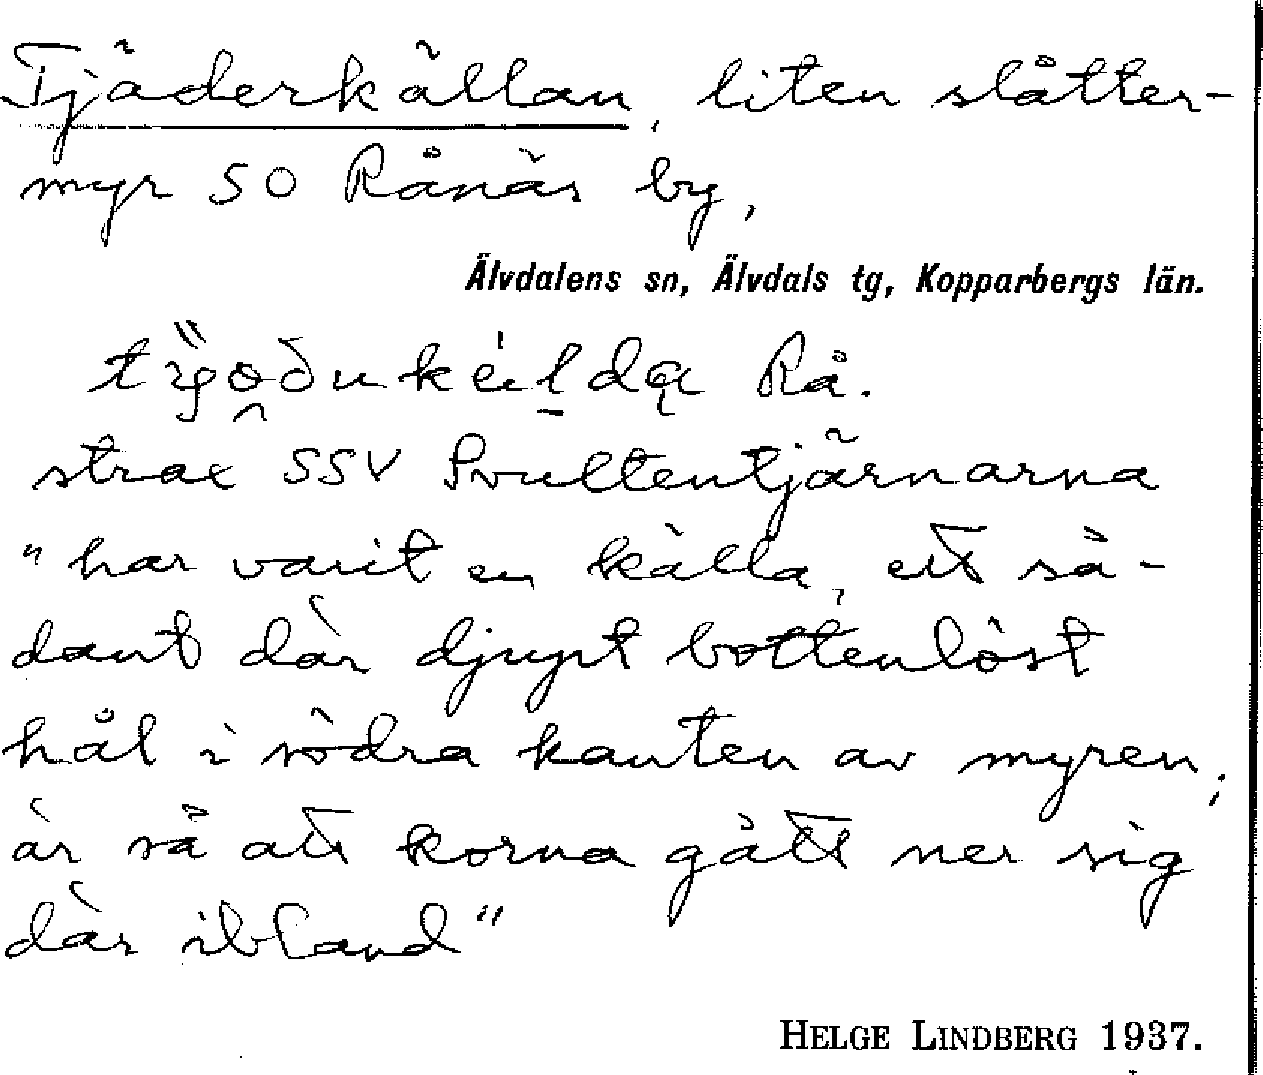 Tjäderkällan, liten slåtter-
myr SO Rånäs by,
Älvdalens sn, Älvdals tg, Kopparbergs län.
Rå.
strax SSV Svultentjärnarna
"har varit en källa, ett så-
dant där djupt bottenlöst
hål i södra kanten av myren,
är så att korna gått ner sig
där ibland"
HELGE LINDBERG 1937.